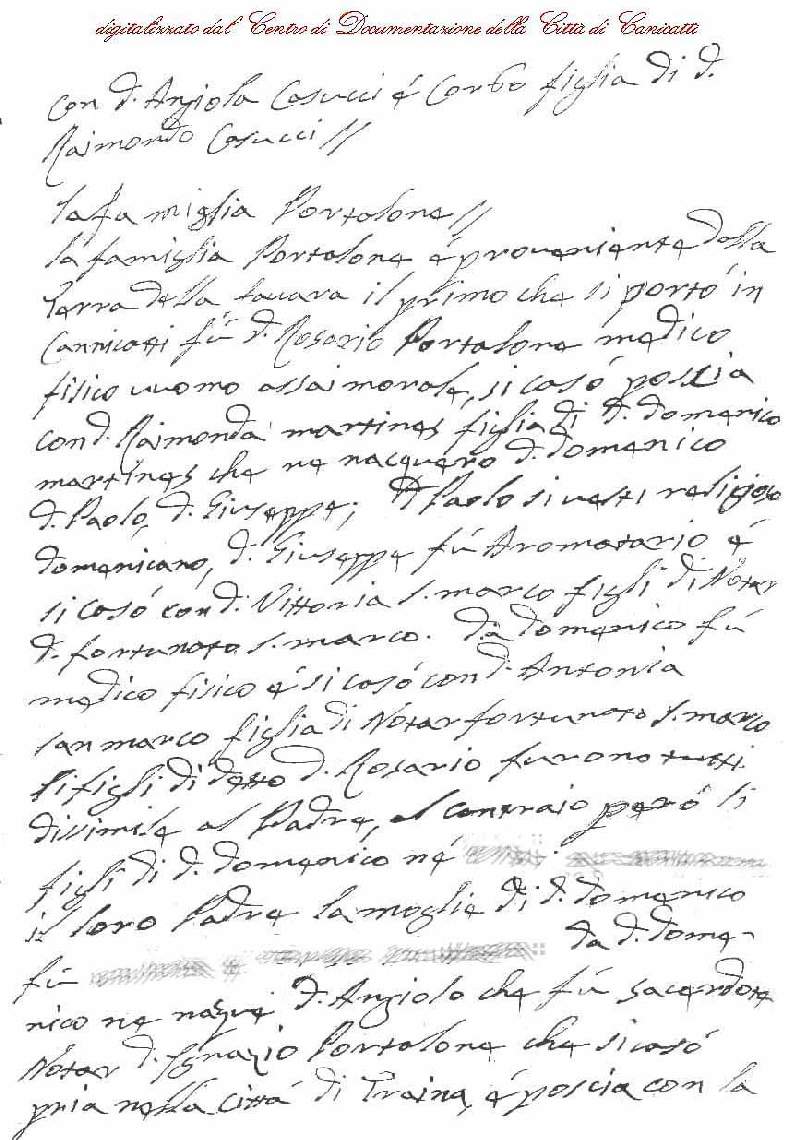 digitalizzato dal Centro di Documentazione della Città di Canicattì
con d. Angiola Casucci é Corbo figlia di d.
Raimondo Casucci //
la famiglia Portalone //
la famiglia Portalone é proveniente della
Terra della favara il primo che si portó in
Cannicatti fú d. Rosario Portalone medico
fisico uuomo assai morale, si casó poscia
con d. Raimonda martines figlia di d. domenico
martines che ne nacquero d. domenico
d. Paolo, d. Giuseppe; d. Paolo si vesti religioso
domenicano, d. Giuseppe fú Aromatario é
si casó con d. Vittoria S. marco figli di Notar
d. fortunato S. marco. da domenico fú
medico fisico é si casó con d. Antonia
san marco figlia di Notar fortunato S. marco
li figli di detto d. Rosario furono tutti
dissimile al Padre, al contraio peró li
figli di d. domenico né
il loro Padre la moglie di d. domenico
fú da d. dome-
nico ne naque d. Angiolo che fú sacerdote
Notar d. Ignazio Portalone che si casó
pria nella cittá di Traina, é poscia con la